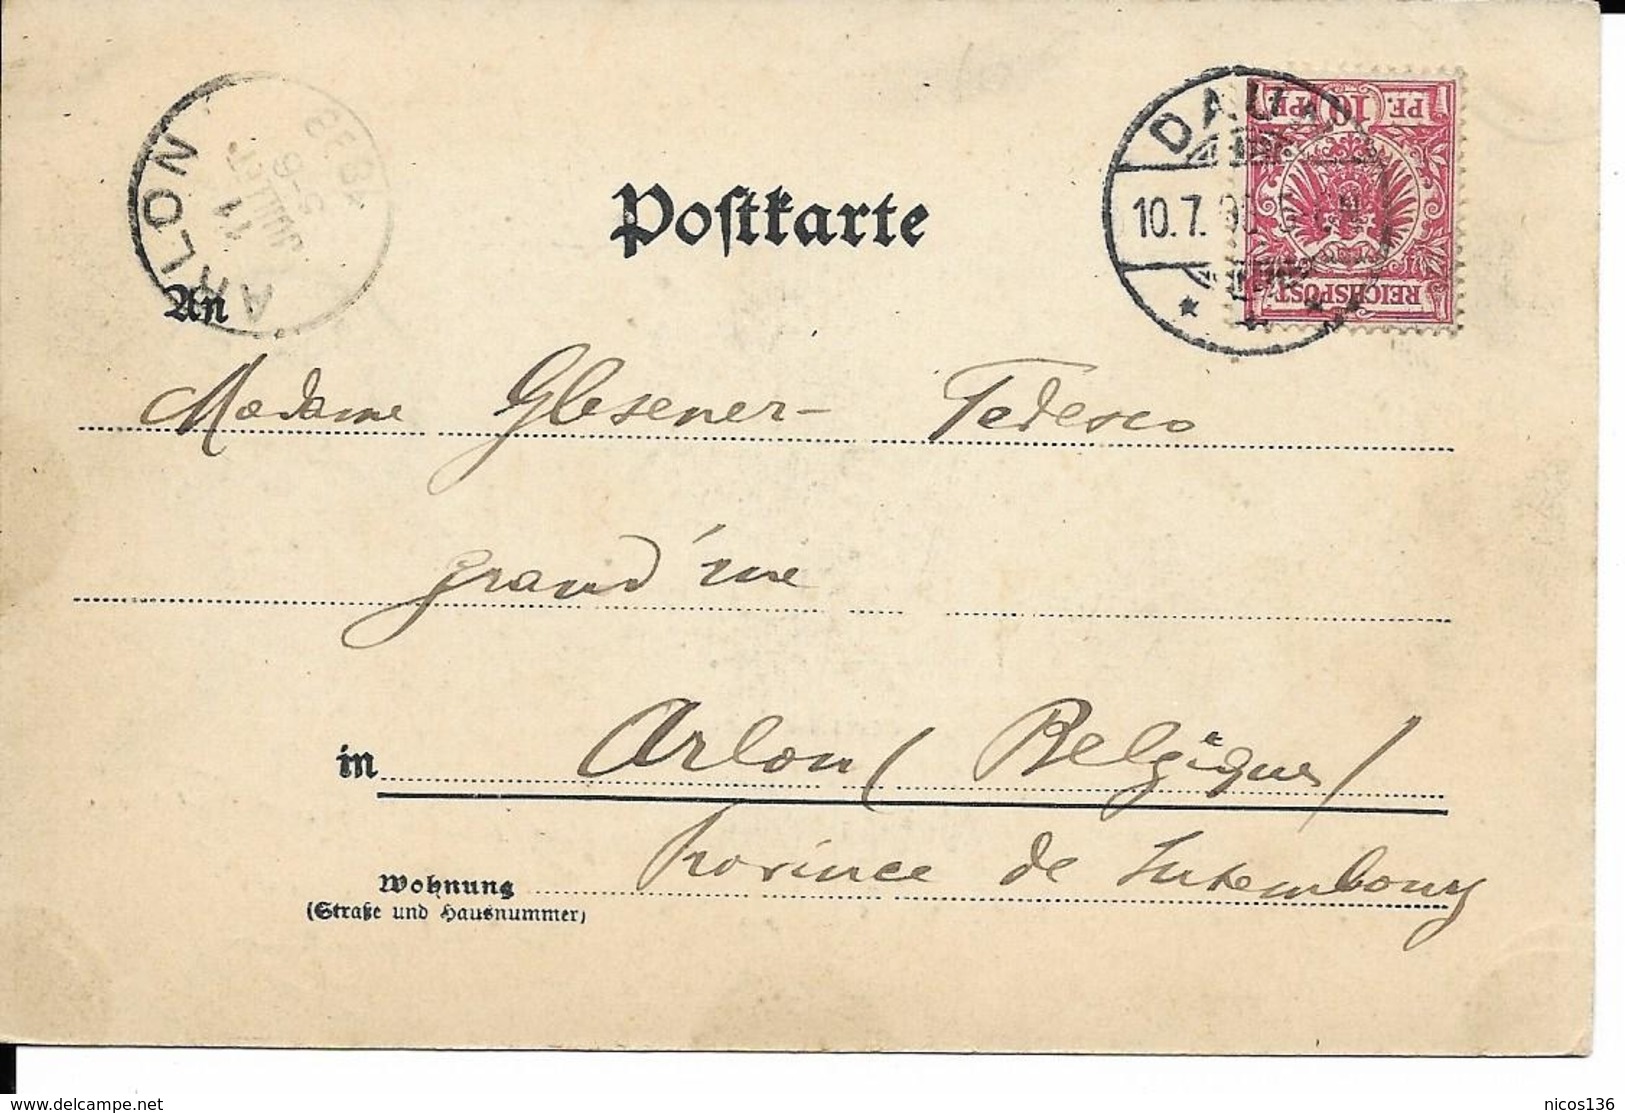 ARLON
11
JUILLET
5-6
1898
DAUN
10.7.98
PF. 10 PF.
REICHSPOST
Postkarte
An
Madame Glesener-Tedesco
grand'rue
in Arlon (Belgique)
Province de Luxembourg
Wohnung
(Straße und Hausnummer)
www.delcampe.net
nicos136